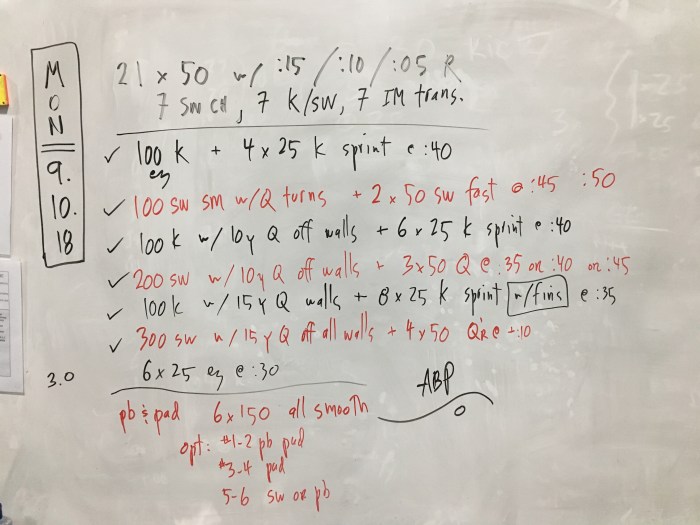 MON
9.
10.
18
21 x 50 w/ :15 / :10 / :05 R
7 sw ch, 7 k/sw, 7 IM trans.
✓ 100 k + 4 x 25 k sprint @ :40
ez
✓ 100 sw sm w/Q turns + 2 x 50 sw fast @ :45 :50
✓ 100 k w/ 10y Q off walls + 6 x 25 k sprint @ :40
✓ 200 sw w/ 10y Q off walls + 3x50 Q @ :35 or :40 or :45
✓ 100k w/ 15y Q walls + 8 x 25 k sprint w/fins @ :35
✓ 300 sw w/ 15y Q off all walls + 4 x 50 @ +:10
6 x 25 ez @ :30
3.0
ABP
pb & pad 6 x 150 all smooth
opt: #1-2 pb pad
#3-4 pad
5-6 sw or pb